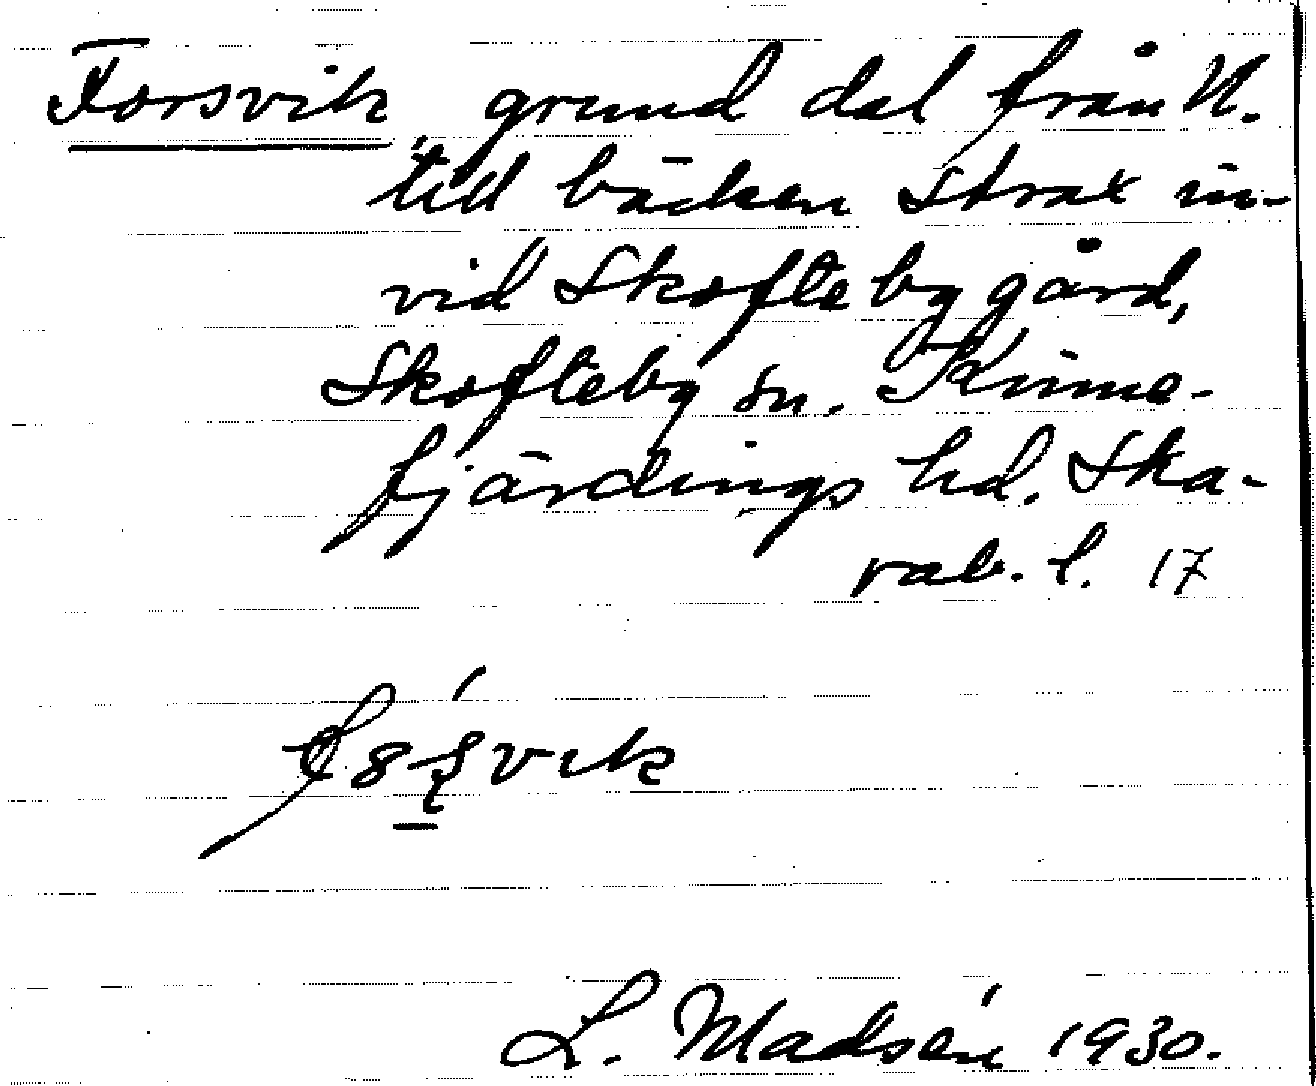 Forsvik, grund dal från N.
till bäcken strax in-
vid Skofteby gård,
Skofteby sn. Kinne-
fjärdings hd. Ska-
rab. l. 17
L. Madsén 1930.